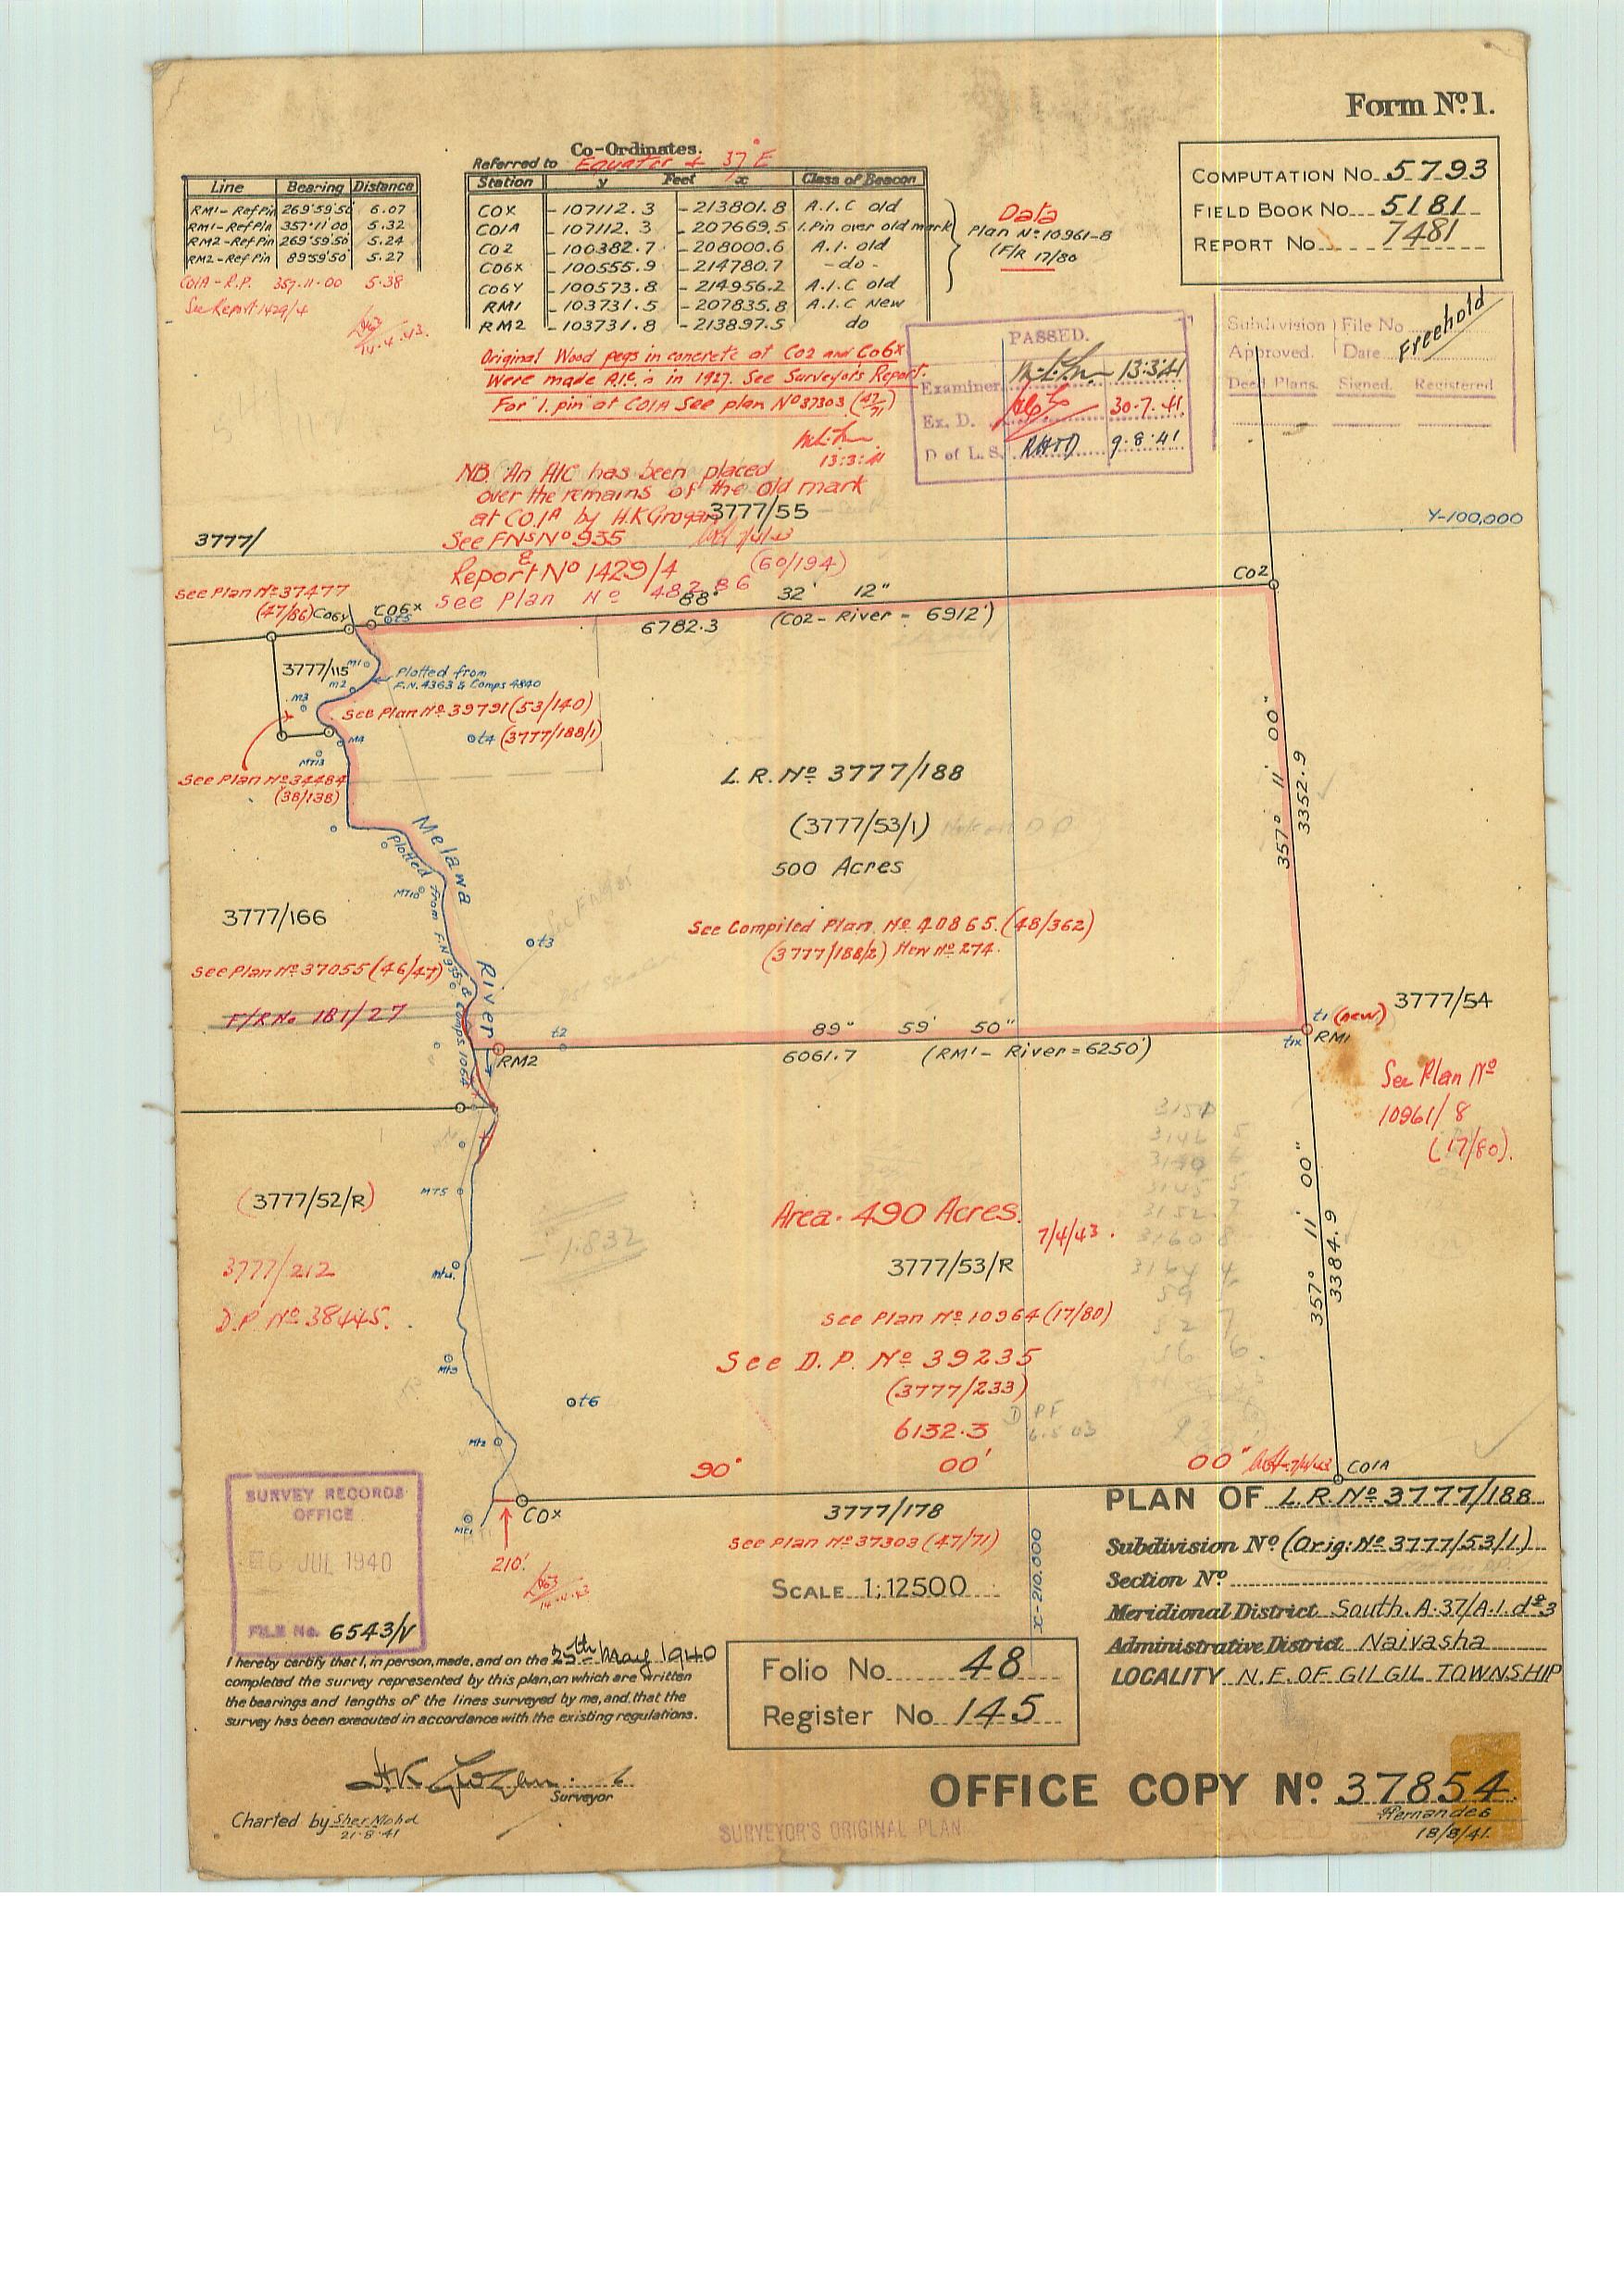 Form Nº 1.
Co-Ordinates.
Referred to Equator & 37° E
Line Bearing Distance
RM1 - Ref Pin 269°59'50 6.07
RM1 - Ref Pin 357°11'00 5.32
RM2 - Ref Pin 269°59'50 5.24
RM2 - Ref Pin 89°59'50" 5.27
CO1A - R.P. 357-11-00 5.38
See Report 1429/4
14.4.43.
Station y Feet x Class of Beacon
COX - 107112.3 - 213801.8 A.I.C old
CO1A - 107112.3 - 207669.5 I.Pin over old mark
CO2 - 100382.7 - 208000.6 A.I. old
CO6X - 100555.9 - 214780.7 - do -
CO6Y - 100573.8 - 214956.2 A.I.C old
RM1 - 103731.5 - 207835.8 A.I.C New
RM2 - 103731.8 - 213897.5 do
Data
Plan Nº 10961-8
(F/R 17/80
COMPUTATION No. 5793
FIELD BOOK No. 5181
REPORT No. 7481
Original Wood pegs in concrete at CO2 and CO6X
Were made A.I.C.s in 1927. See Surveyor's Report.
For "I. pin" at CO1A See plan Nº 37303 (47/71)
13:3:41
PASSED.
Examiner 13:3:41
Ex. D. 30.7.41.
D of L.S. 9.8.41
Subdivision File No
Approved. Date Freehold
Deed Plans. Signed. Registered
NB. An AIC has been placed
over the remains of the old mark
at CO.1A by H.K Grogan
See FNs Nº 935
&
Report Nº 1429/4
See Plan Nº 48286 (60/194)
3777/55
3777/
Y-100,000
See Plan Nº 37477
(47/86)
CO6Y
CO6X
t5
88° 32' 12"
6782.3 (CO2 - River = 6912')
CO2
3777/115
M1
M2
M3
M4
Plotted from
F.N. 4363 & Comps 4840
See Plan Nº 39791 (53/140)
t4 (3777/188/1)
MT13
See Plan Nº 34484
(38/138)
L.R. Nº 3777/188
(3777/53/1)
500 Acres
357° 11' 00"
3352.9
Melawa River
Plotted from F.N 935 & Comps 1064
MT10
3777/166
See Compiled Plan Nº 40865. (48/362)
(3777/188/2) New Nº 274.
t3
See Plan Nº 37055 (46/47)
F/R No 181/27
t2
RM2
89° 59' 50"
6061.7 (RM1 - River = 6250')
t1 (new)
t1x
RM1
3777/54
See Plan Nº
10961/8
(17/80).
MT5
(3777/52/R)
3777/212
D.P. Nº 38445.
1.832
Area. 490 Acres.
7/4/43.
3777/53/R
See Plan Nº 10964 (17/80)
See D.P. Nº 39235
(3777/233)
6132.3
90° 00' 00"
357° 11' 00"
3384.9
Mt4
Mt3
t6
Mt2
Mt1
COX
CO1A
210'
3777/178
See Plan Nº 37303 (47/71)
SCALE 1:12500
X-210,000
SURVEY RECORDS
OFFICE
6 JUL 1940
FILE No. 6543/V
PLAN OF L.R. Nº 3777/188
Subdivision Nº (Orig: Nº 3777/53/1)
Section Nº
Meridional District South. A.37/A.I.d & 3
Administrative District Naivasha
LOCALITY N.E. OF GILGIL TOWNSHIP
I hereby certify that I, in person, made, and on the 25th May 1940
completed the survey represented by this plan, on which are written
the bearings and lengths of the lines surveyed by me, and that the
survey has been executed in accordance with the existing regulations.
Surveyor
Charted by Sher Mohd
21.8.41
Folio No. 48
Register No. 145
SURVEYOR'S ORIGINAL PLAN
OFFICE COPY Nº 37854
Hernandes
18/8/41.